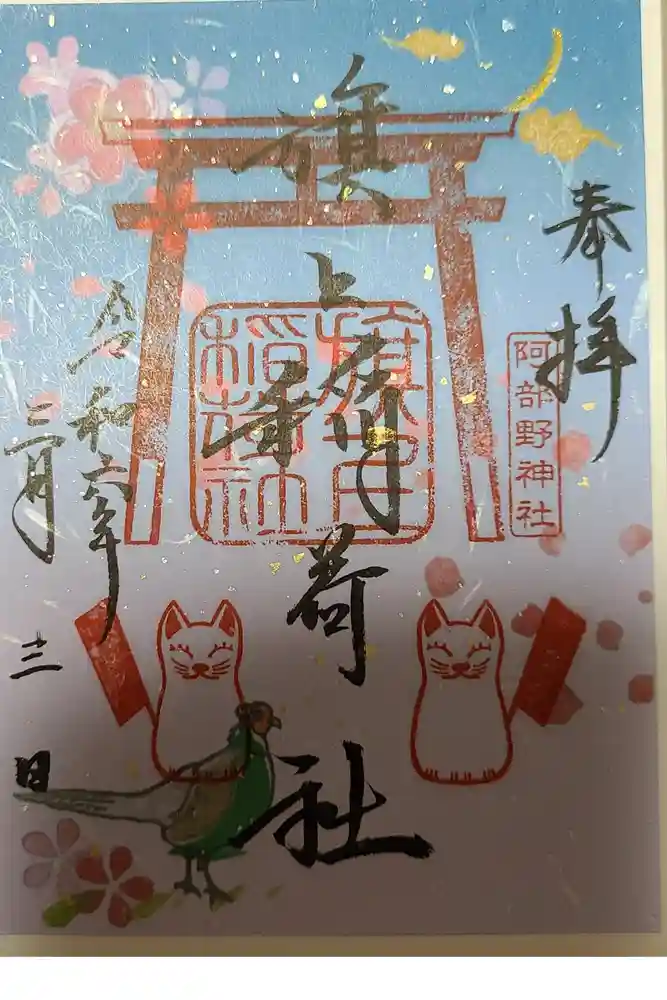 奉拝
阿部野神社
旗上稲荷社
稲荷社
令和六年
三月三日